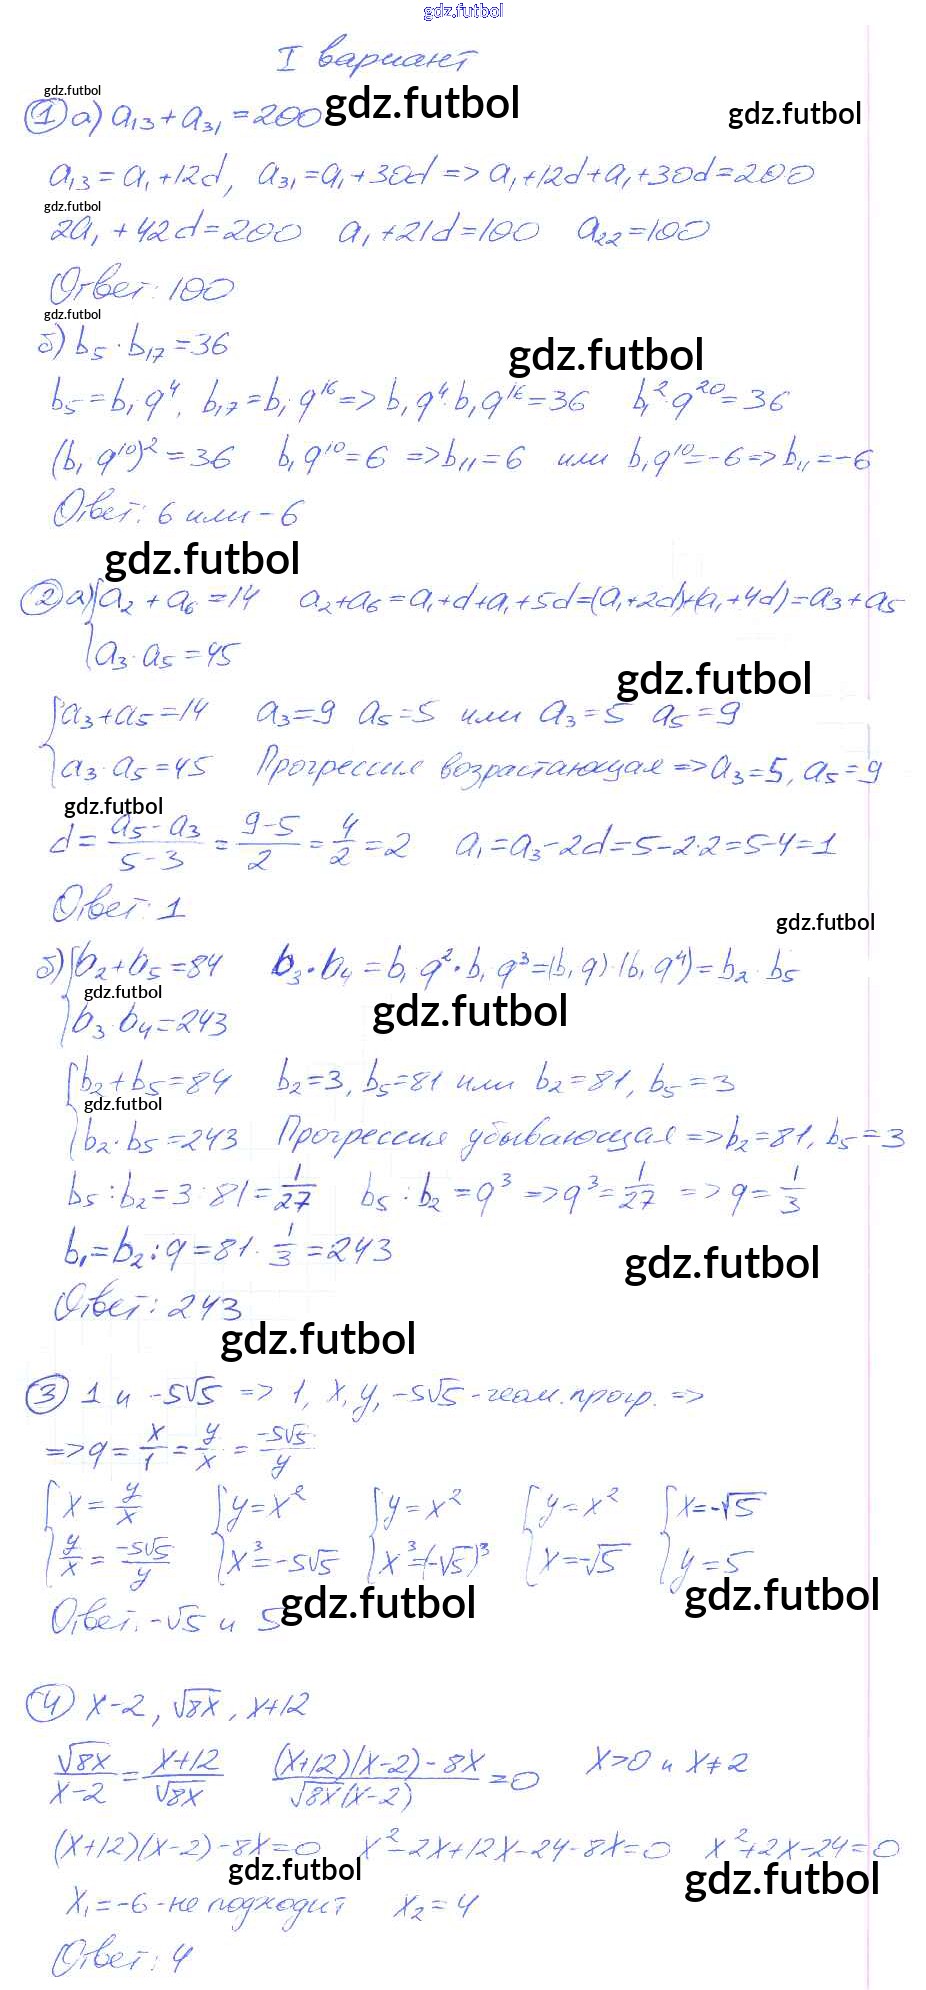 gdz.futbol
I вариант
gdz.futbol
① а) a₁₃ + a₃₁ = 200 gdz.futbol gdz.futbol
a₁₃ = a₁ + 12d, a₃₁ = a₁ + 30d => a₁ + 12d + a₁ + 30d = 200
gdz.futbol
2a₁ + 42d = 200 a₁ + 21d = 100 a₂₂ = 100
Ответ: 100
gdz.futbol
б) b₅ · b₁₇ = 36 gdz.futbol
b₅ = b₁ q⁴, b₁₇ = b₁ q¹⁶ => b₁ q⁴ · b₁ q¹⁶ = 36 b₁² · q²⁰ = 36
(b₁ q¹⁰)² = 36 b₁ q¹⁰ = 6 => b₁₁ = 6 или b₁ q¹⁰ = -6 => b₁₁ = -6
Ответ: 6 или -6
gdz.futbol
② а) { a₂ + a₆ = 14 a₂ + a₆ = a₁ + d + a₁ + 5d = (a₁ + 2d) + (a₁ + 4d) = a₃ + a₅
a₃ · a₅ = 45
gdz.futbol
{ a₃ + a₅ = 14 a₃ = 9 a₅ = 5 или a₃ = 5 a₅ = 9
a₃ · a₅ = 45 Прогрессия возрастающая => a₃ = 5, a₅ = 9
gdz.futbol
d = (a₅ - a₃)/(5 - 3) = (9 - 5)/2 = 4/2 = 2 a₁ = a₃ - 2d = 5 - 2·2 = 5 - 4 = 1
Ответ: 1
gdz.futbol
б) { b₂ + b₅ = 84 b₃ · b₄ = b₁ q² · b₁ q³ = (b₁ q) · (b₁ q⁴) = b₂ · b₅
gdz.futbol
b₃ · b₄ = 243 gdz.futbol
{ b₂ + b₅ = 84 b₂ = 3, b₅ = 81 или b₂ = 81, b₅ = 3
gdz.futbol
b₂ · b₅ = 243 Прогрессия убывающая => b₂ = 81, b₅ = 3
b₅ : b₂ = 3 : 81 = 1/27 b₅ : b₂ = q³ => q³ = 1/27 => q = 1/3
b₁ = b₂ : q = 81 · 1/3 = 243 gdz.futbol
Ответ: 243
gdz.futbol
③ 1 и -5√5 => 1, x, y, -5√5 - геом. прогр. =>
=> q = x/1 = y/x = -5√5/y
{ x = y/x { y = x² { y = x² { y = x² { x = -√5
y/x = -5√5/y x³ = -5√5 x³ = (-√5)³ x = -√5 y = 5
Ответ: -√5 и 5 gdz.futbol gdz.futbol
④ x - 2, √8x, x + 12
√8x/(x - 2) = (x + 12)/√8x ((x + 12)(x - 2) - 8x)/(√8x (x - 2)) = 0 x > 0 и x ≠ 2
(x + 12)(x - 2) - 8x = 0 x² - 2x + 12x - 24 - 8x = 0 x² + 2x - 24 = 0
gdz.futbol gdz.futbol
x₁ = -6 - не подходит x₂ = 4
Ответ: 4